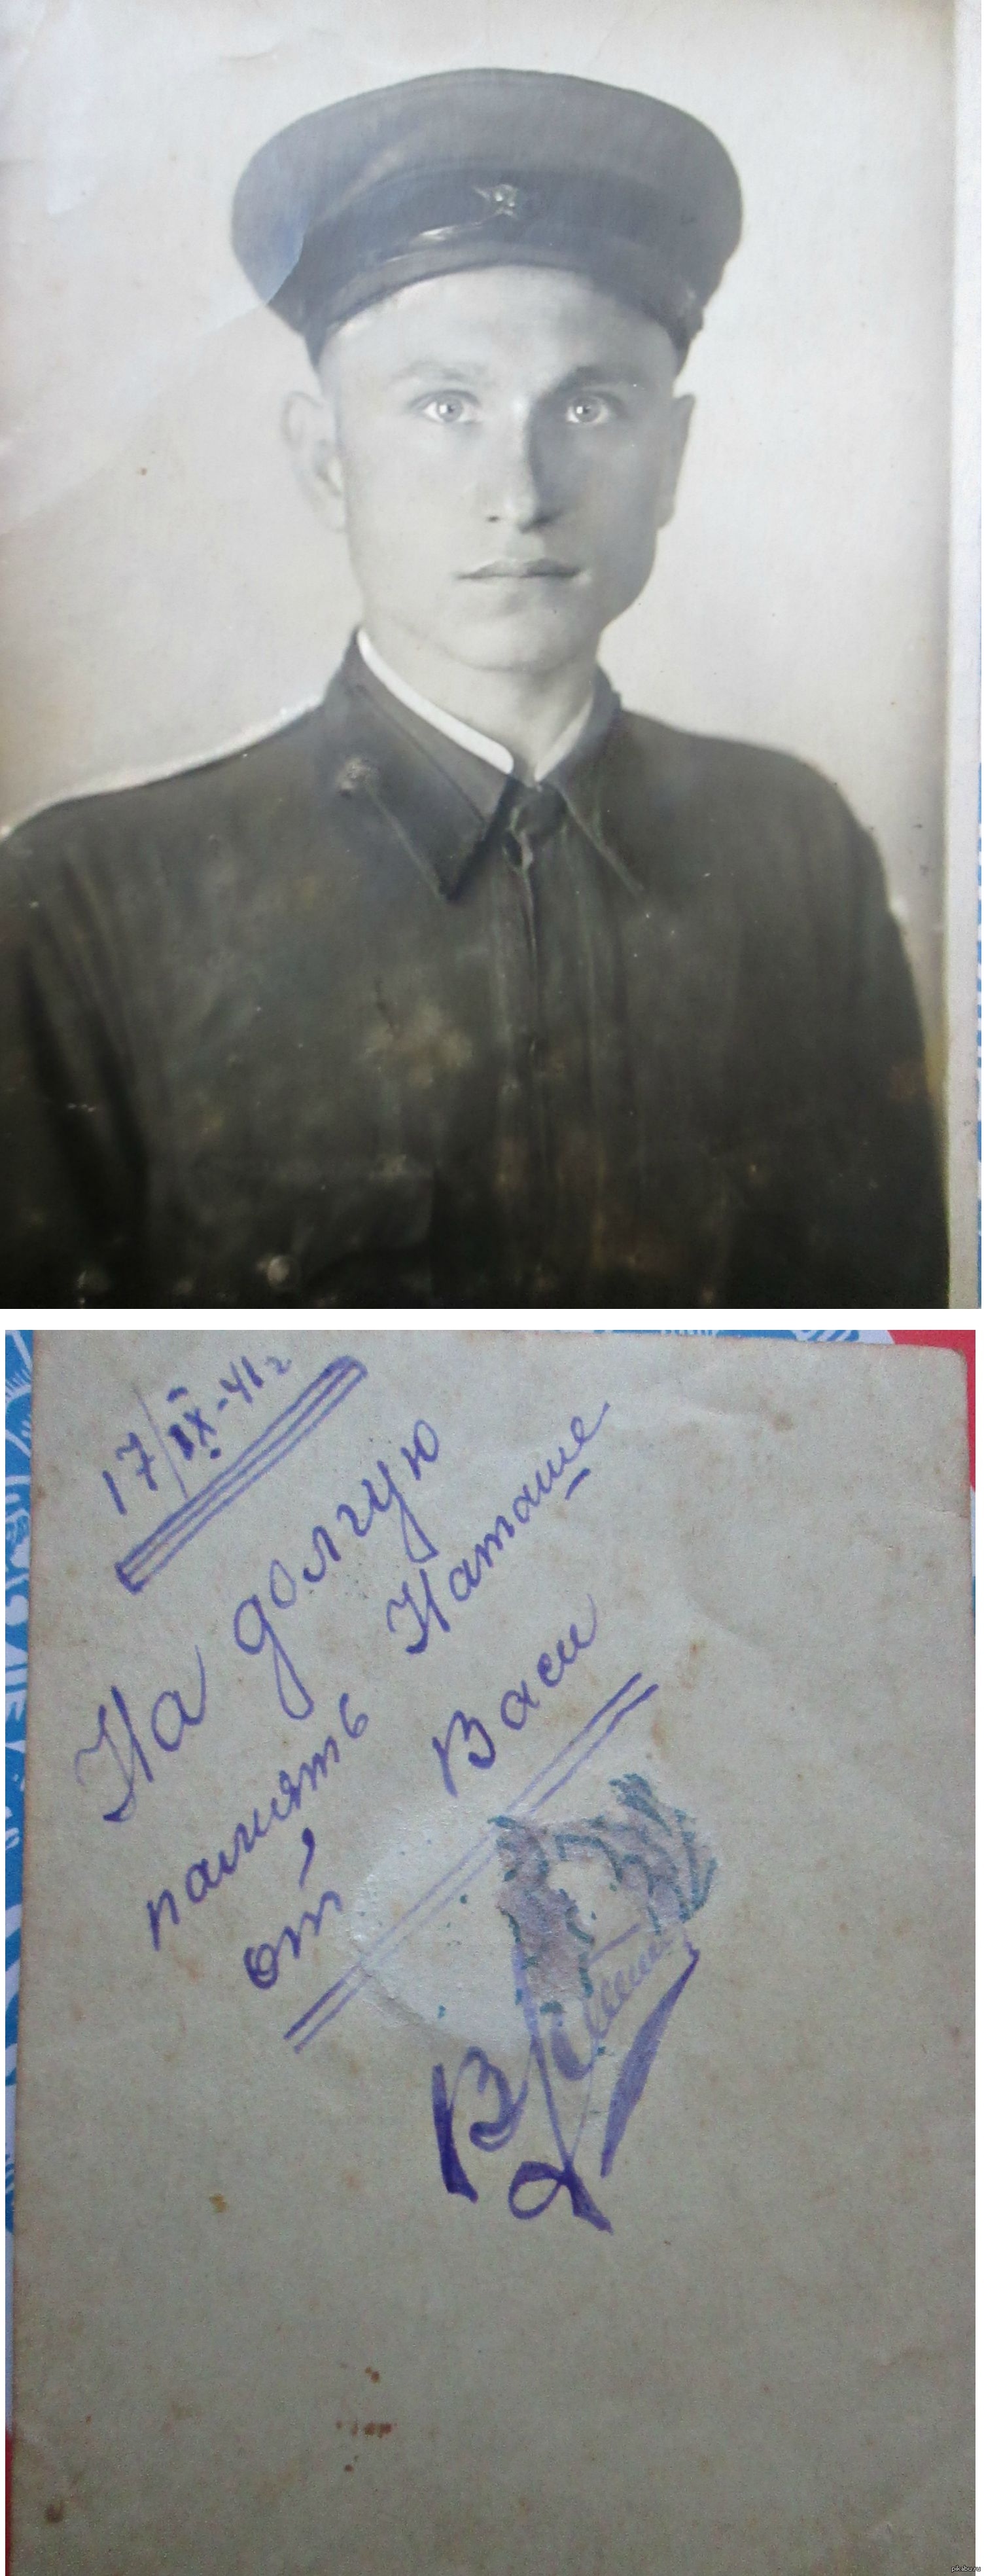 17/IX-41г
На долгую
память Наташе
от Васи
pikabu.ru